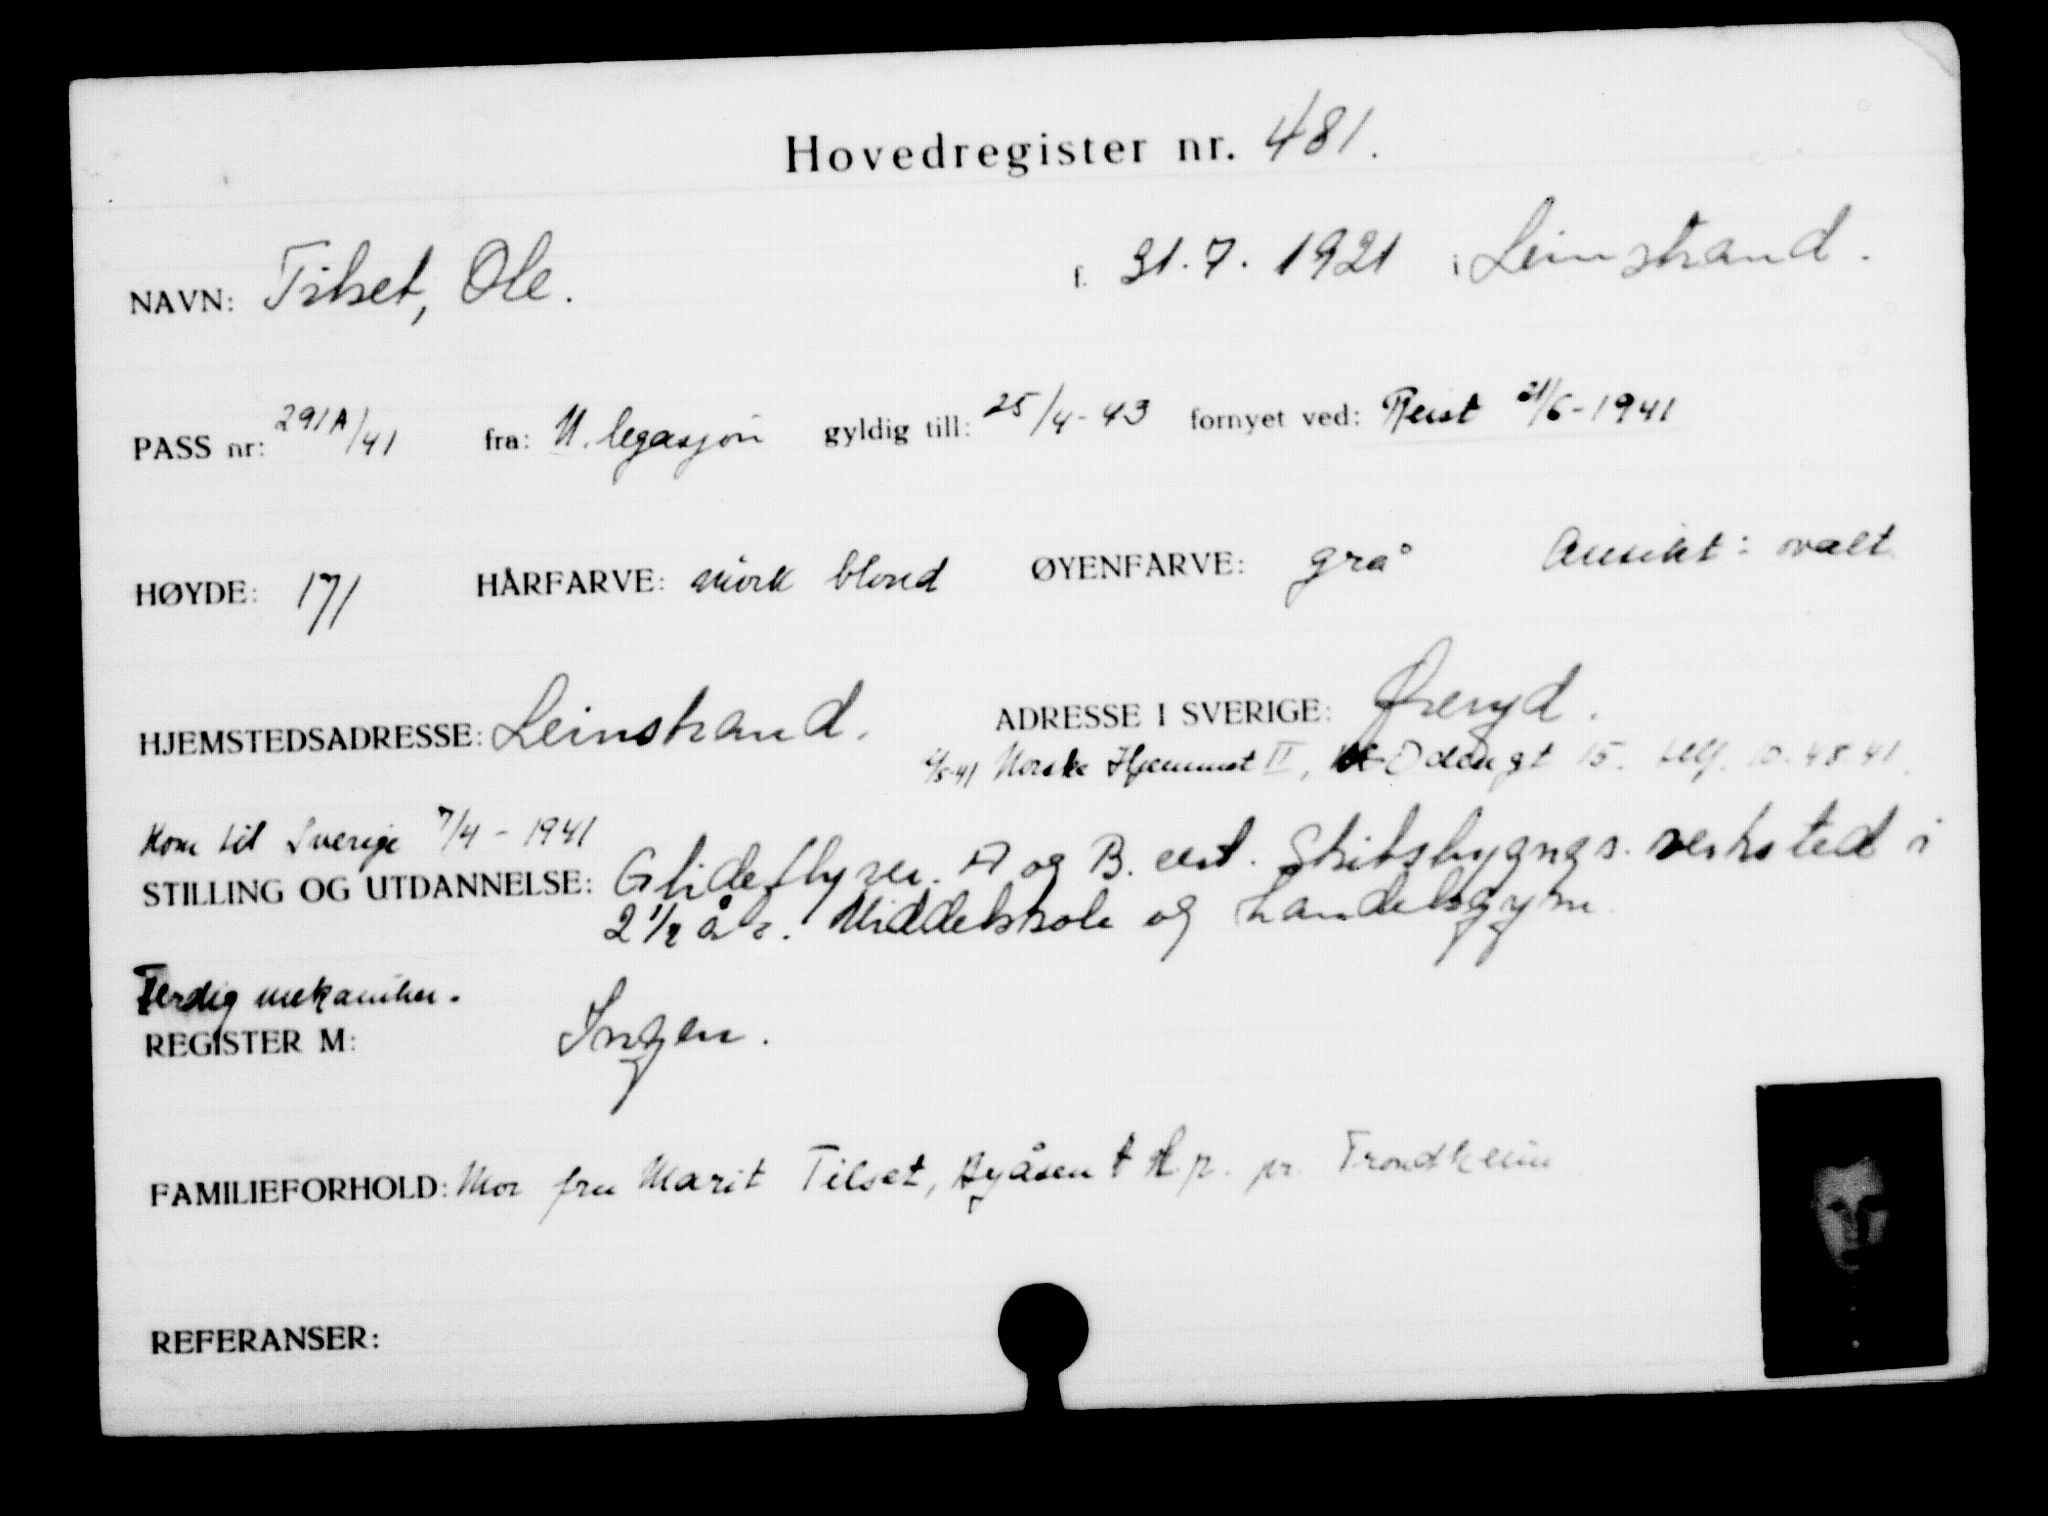 Hovedregister nr. 481.
NAVN: Tilset, Ole. f. 31.7.1921 i Leinstrand.
PASS nr: 291A/41 fra: N. legasjon gyldig till: 25/4-43 fornyet ved: Reist 21/6-1941
HØYDE: 171 HÅRFARVE: mørk blond ØYENFARVE: grå Ansikt: ovalt
HJEMSTEDSADRESSE: Leinstrand. ADRESSE I SVERIGE: Øreryd.
/5-41 Norske Hjemmet II, Odengt 15. telf. 10.48.41.
Kom til Sverige 7/4-1941
STILLING OG UTDANNELSE: Glideflyver. A og B. cert. Skibsbygngs. verksted i
2 1/2 år. Middelskole og Handelsgym.
Ferdig mekaniker.
REGISTER M: Ingen.
FAMILIEFORHOLD: Mor fru Marit Tilset, Byåsen p. pr. Trondheim
REFERANSER: